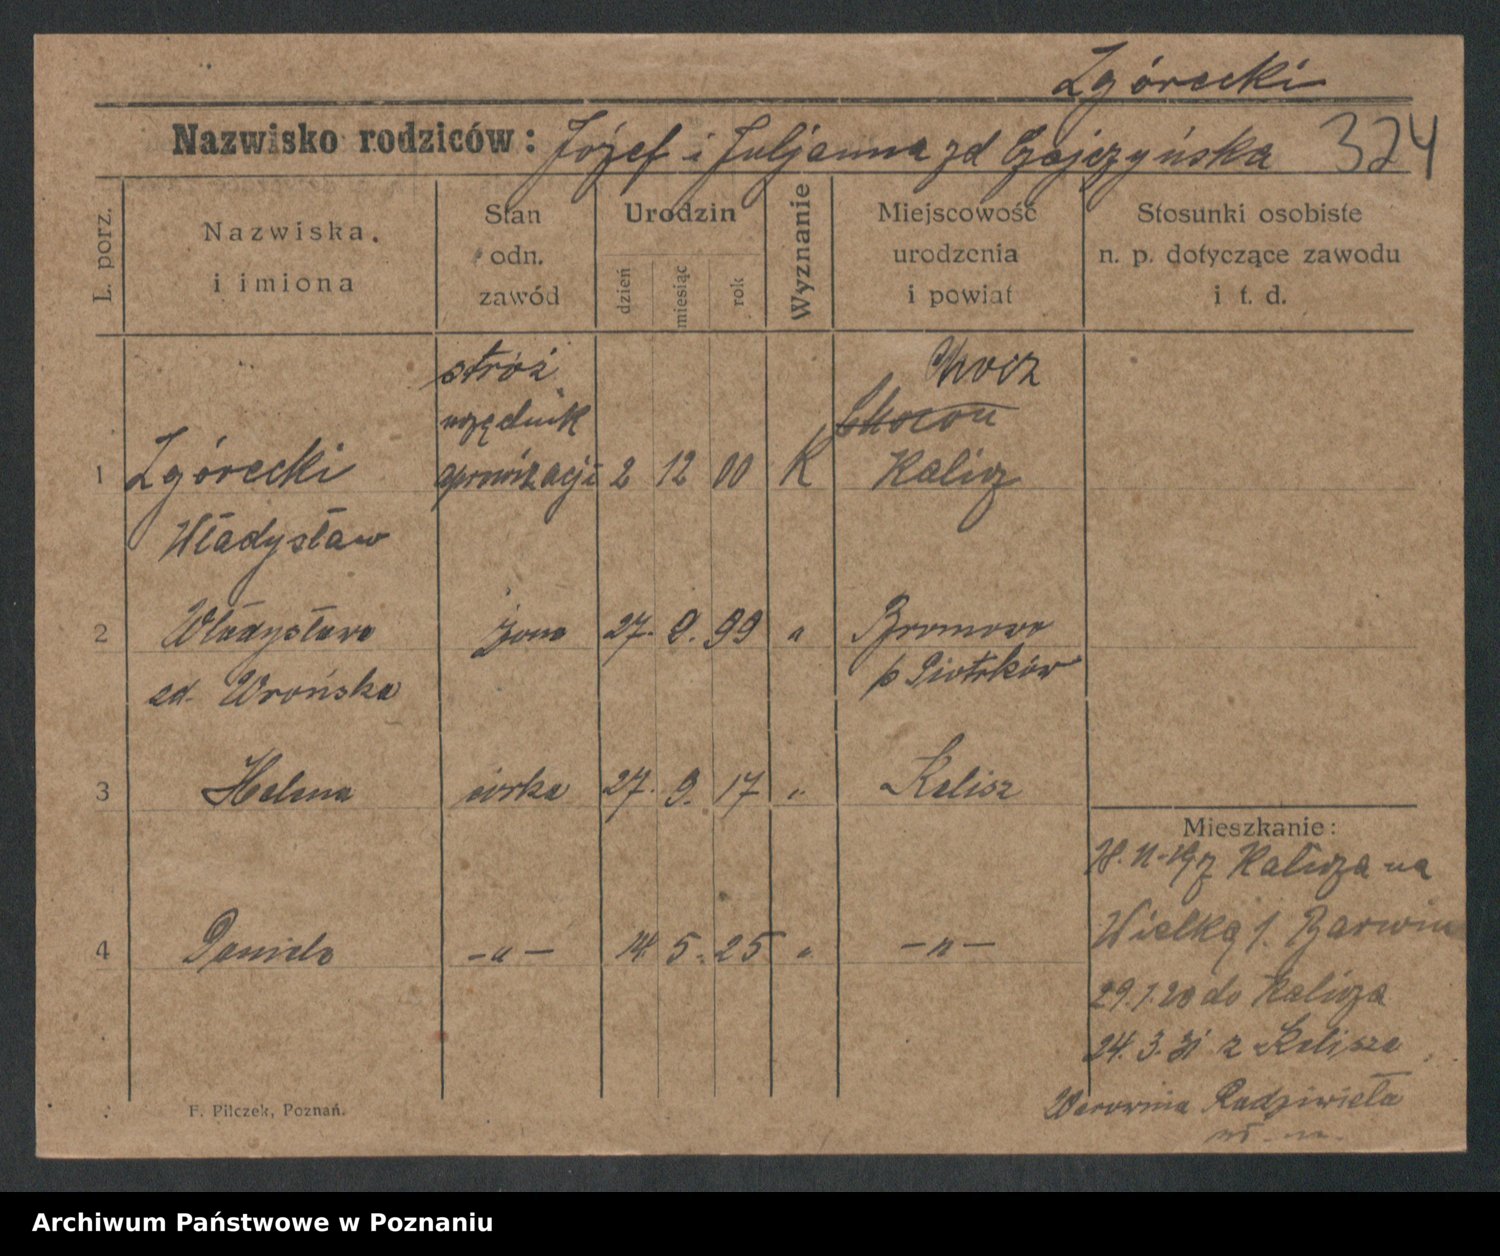 Zgórecki
Nazwisko rodziców: Józef i Juljanna zd 324
L. porz.
Nazwiska i imiona
Stan odn. zawód
Urodzin
dzień miesiąc rok
Wyznanie
Miejscowość urodzenia i powiat
Stosunki osobiste n. p. dotyczące zawodu i t. d.
stróż Chocz
urzędnik
1 Zgórecki aprowizacji 2 12 00 K Kalisz
Władysław
2 Władysława żona 27. 9. 99 „
zd. Wrońska p Piotrków
3 Helena córka 27. 9. 17 „ Kalisz
Mieszkanie:
z Kalisza na
4 Daniela -„- 14. 5. 25 „ -„-
Wielką
29.1.20 do Kalisza
24. 3. 31 z Kalisza
Warownia Radziwiłła
F. Pilczek, Poznań.
Archiwum Państwowe w Poznaniu